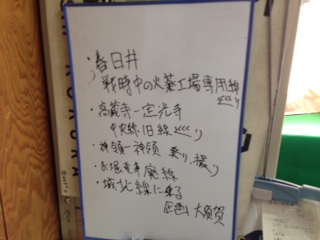 ・春日井
戦時中の火薬工場専用線
ぐぐり
・高蔵寺－定光寺
中央線旧線
・神領－神領 乗り、撮り
電車廃線
・城北線に乗る
企画 大須賀